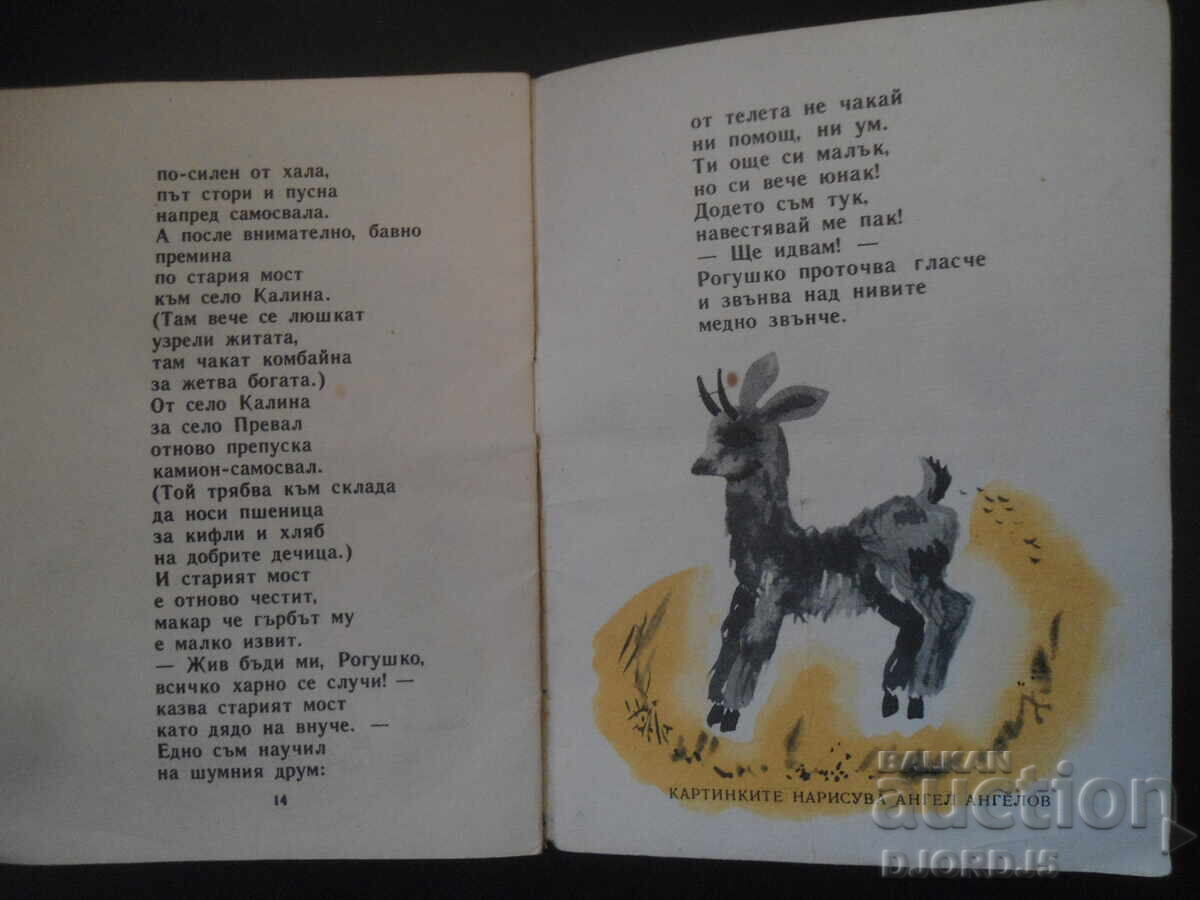 по-силен от хала,
път стори и пусна
напред самосвала.
А после внимателно, бавно
премина
по стария мост
към село Калина.
(Там вече се люшкат
узрели житата,
там чакат комбайна
за жетва богата.)
От село Калина
за село Превал
отново препуска
камион-самосвал.
(Той трябва към склада
да носи пшеница
за кифли и хляб
на добрите дечица.)
И старият мост
е отново честит,
макар че гърбът му
е малко извит.
— Жив бъди ми, Рогушко,
всичко харно се случи! —
казва старият мост
като дядо на внуче. —
Едно съм научил
на шумния друм:
14
от телета не чакай
ни помощ, ни ум.
Ти още си малък,
но си вече юнак!
Додето съм тук,
навестявай ме пак!
— Ще идвам! —
Рогушко проточва гласче
и звънва над нивите
медно звънче.
КАРТИНКИТЕ НАРИСУВА АНГЕЛ АНГЕЛОВ
BALKAN
auction
DJORDJ5